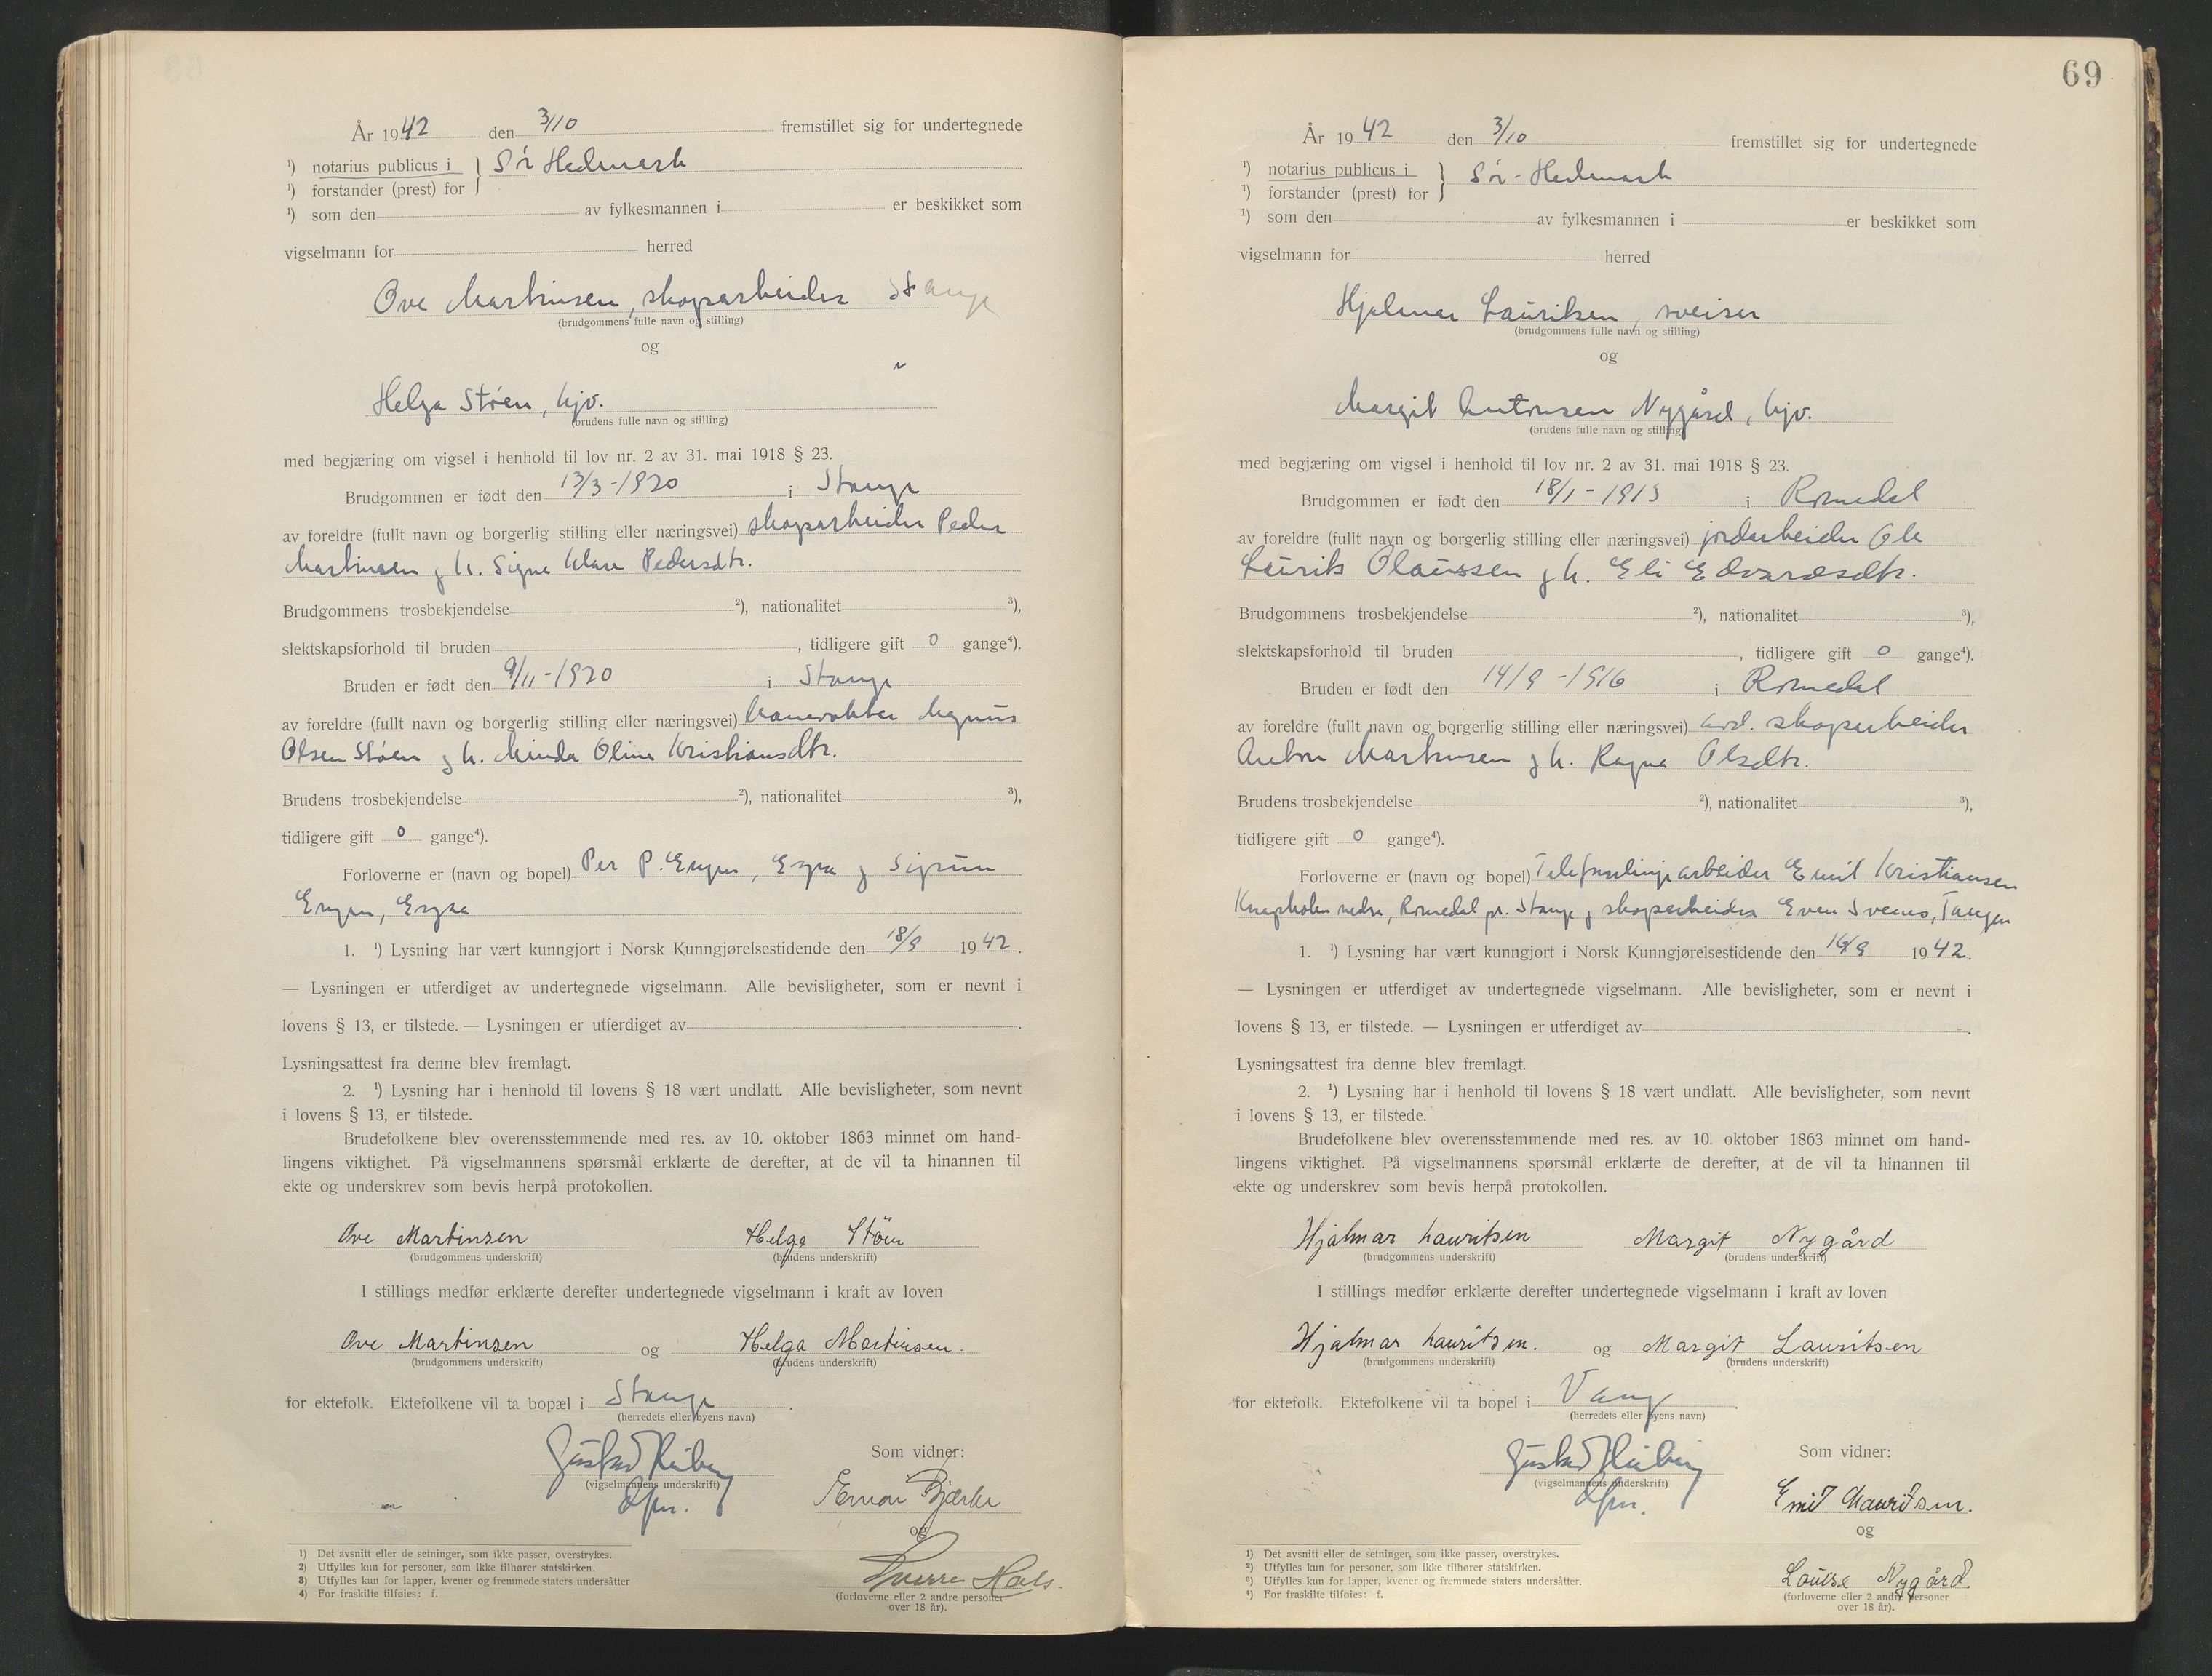 År 1942 den 3/10 fremstillet sig for undertegnede
¹) notarius publicus i } Sör Hedmark
¹) forstander (prest) for
¹) som den av fylkesmannen i er beskikket som
vigselmann for herred
Ove Martinsen, skogsarbeider Stange
(brudgommens fulle navn og stilling)
og
"
Helga Stöen, hjv.
(brudens fulle navn og stilling)
med begjæring om vigsel i henhold til lov nr. 2 av 31. mai 1918 § 23.
Brudgommen er født den 13/3-1920 i Stange
av foreldre (fullt navn og borgerlig stilling eller næringsvei) skogsarbeider Peder
Martinsen og h. Signe Klara Pedersdtr.
Brudgommens trosbekjendelse ²), nationalitet ³),
slektskapsforhold til bruden , tidligere gift 0 gange⁴).
Bruden er født den 9/11-1920 i Stange
av foreldre (fullt navn og borgerlig stilling eller næringsvei) banevokter Magnus
Olsen Stöen og h. Minda Oline Kristiansdtr.
Brudens trosbekjendelse ²), nationalitet ³),
tidligere gift 0 gange⁴).
Forloverne er (navn og bopel) Per P. Engen, Espa og Sigrun
Engen, Espa
1. ¹) Lysning har vært kunngjort i Norsk Kunngjørelsestidende den 18/9 1942.
— Lysningen er utferdiget av undertegnede vigselmann. Alle bevisligheter, som er nevnt i
lovens § 13, er tilstede. — Lysningen er utferdiget av .
Lysningsattest fra denne blev fremlagt.
2. ¹) Lysning har i henhold til lovens § 18 vært undlatt. Alle bevisligheter, som nevnt
i lovens § 13, er tilstede.
Brudefolkene blev overensstemmende med res. av 10. oktober 1863 minnet om hand-
lingens viktighet. På vigselmannens spørsmål erklærte de derefter, at de vil ta hinannen til
ekte og underskrev som bevis herpå protokollen.
Ove Martinsen Helga Stöen
(brudgommens underskrift) (brudens underskrift)
I stillings medfør erklærte derefter undertegnede vigselmann i kraft av loven
Ove Martinsen og Helga Martinsen.
(brudgommens underskrift) (brudens underskrift)
for ektefolk. Ektefolkene vil ta bopæl i Stange .
(herredets eller byens navn)
Som vidner:
Gustav Heiberg
(vigselmannens underskrift)
dfm.
Bjerke
og
Sverre Hals.
(forloverne eller 2 andre personer
over 18 år).
1) Det avsnitt eller de setninger, som ikke passer, overstrykes.
2) Utfylles kun for personer, som ikke tilhører statskirken.
3) Utfylles kun for lapper, kvener og fremmede staters undersåtter
4) For fraskilte tilføies: f.
69
År 1942 den 3/10 fremstillet sig for undertegnede
¹) notarius publicus i } Sör-Hedmark
¹) forstander (prest) for
¹) som den av fylkesmannen i er beskikket som
vigselmann for herred
Hjalmar Lauritsen, sveiser
(brudgommens fulle navn og stilling)
og
Margit Antonsen Nygård, hjv.
(brudens fulle navn og stilling)
med begjæring om vigsel i henhold til lov nr. 2 av 31. mai 1918 § 23.
Brudgommen er født den 18/1-1913 i Romedal
av foreldre (fullt navn og borgerlig stilling eller næringsvei) jordarbeider Ole
Laurits Olaussen og h. Eli Edvardsdtr.
Brudgommens trosbekjendelse ²), nationalitet ³),
slektskapsforhold til bruden , tidligere gift 0 gange⁴).
Bruden er født den 14/9-1916 i Romedal
av foreldre (fullt navn og borgerlig stilling eller næringsvei) avd. skogsarbeider
Anton Martinsen og h. Ragna Olsdtr.
Brudens trosbekjendelse ²), nationalitet ³),
tidligere gift 0 gange⁴).
Forloverne er (navn og bopel) Telefonlinjearbeider Emil Kristiansen
nedre, Romedal pr. Stange og skogsarbeider Even Svenes, Tangen
1. ¹) Lysning har vært kunngjort i Norsk Kunngjørelsestidende den 16/9 1942.
— Lysningen er utferdiget av undertegnede vigselmann. Alle bevisligheter, som er nevnt i
lovens § 13, er tilstede. — Lysningen er utferdiget av .
Lysningsattest fra denne blev fremlagt.
2. ¹) Lysning har i henhold til lovens § 18 vært undlatt. Alle bevisligheter, som nevnt
i lovens § 13, er tilstede.
Brudefolkene blev overensstemmende med res. av 10. oktober 1863 minnet om hand-
lingens viktighet. På vigselmannens spørsmål erklærte de derefter, at de vil ta hinannen til
ekte og underskrev som bevis herpå protokollen.
Hjalmar Lauritsen Margit Nygård
(brudgommens underskrift) (brudens underskrift)
I stillings medfør erklærte derefter undertegnede vigselmann i kraft av loven
Hjalmar Lauritsen. og Margit Lauritsen
(brudgommens underskrift) (brudens underskrift)
for ektefolk. Ektefolkene vil ta bopel i Vang .
(herredets eller byens navn)
Som vidner:
Gustav Heiberg
(vigselmannens underskrift)
dfm.
Emil Lauritsen.
og
Louise Nygård.
(forloverne eller 2 andre personer
over 18 år).
¹) Det avsnitt eller de setninger, som ikke passer, overstrykes.
²) Utfylles kun for personer, som ikke tilhører statskirken.
³) Utfylles kun for lapper, kvener og fremmede staters undersåtter.
⁴) For fraskilte tilføies: f.